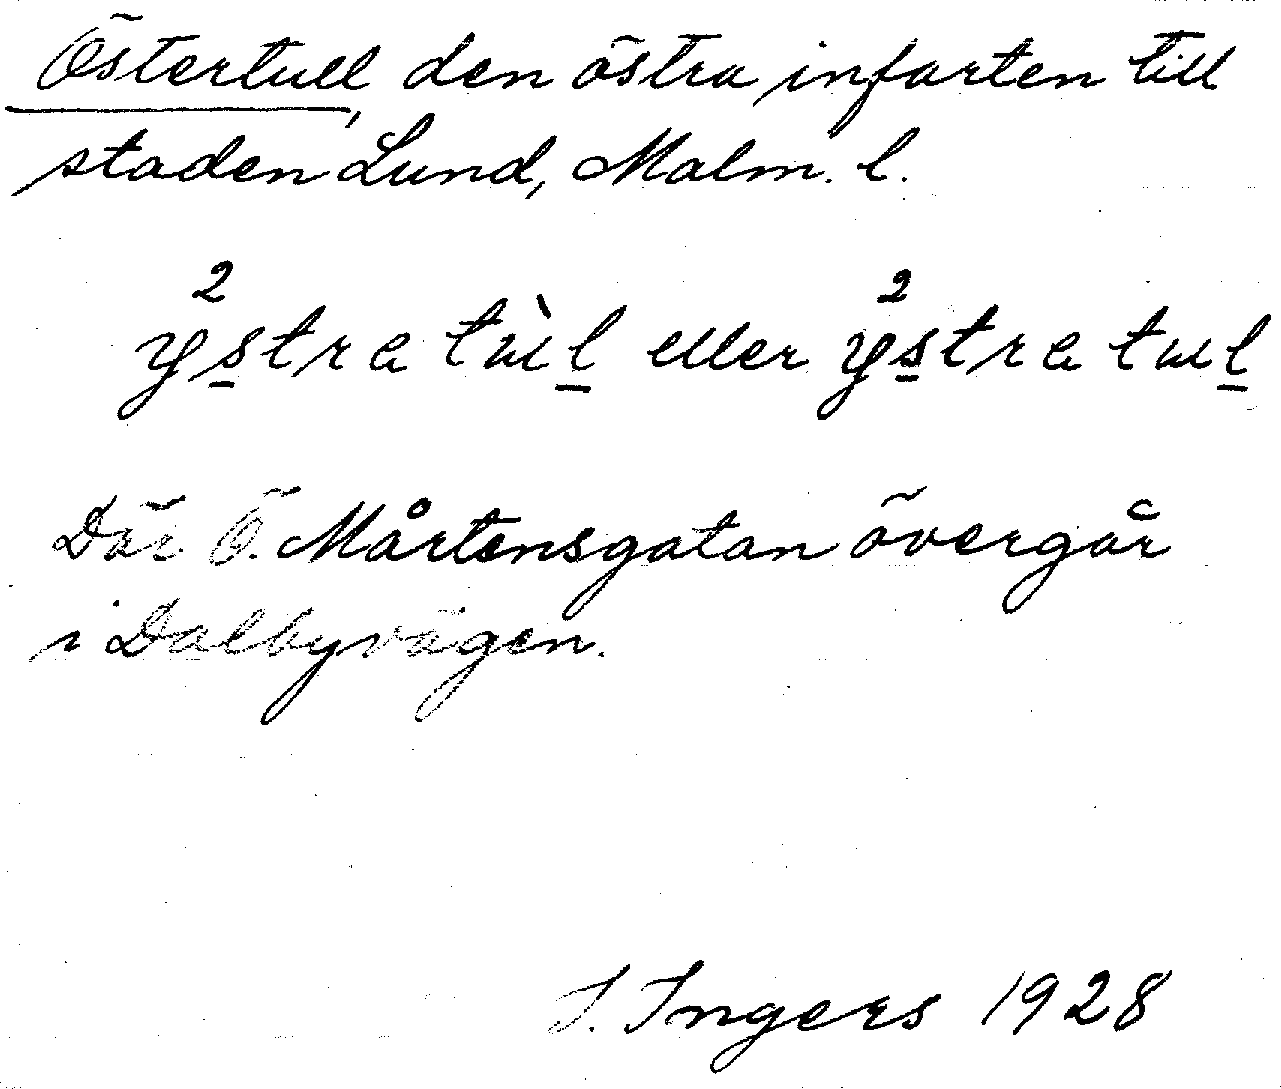 Östertull, den östra infarten till
staden Lund, Malm. l.
y²stra tùl eller y²stra tul
Där Ö. Mårtensgatan övergår
i Dalbyvägen.
I. Ingers 1928